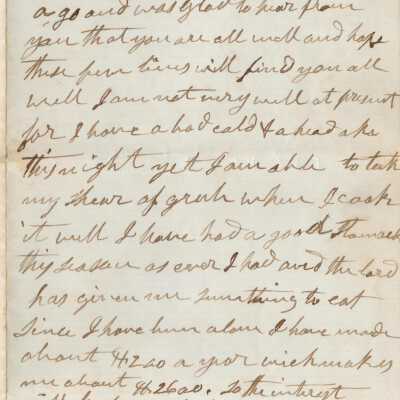 a go and was glad to hear from
you that you are all well and hope
these few lines will find you all
well I am not very well at present
for I have a bad cald & a head ake
this night yet I am able to take
my shear of grub when I cooke
it well I have had a good stomack
this season as ever I had and the lord
has given me sumthing to eat
since I have bin alone I have made
about $200 a year wich makes
me about $2600. So the interest